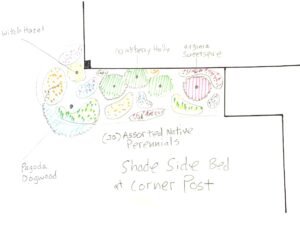 Witch Hazel
Winterberry Holly
Virginia
Sweetspire
(30) Assorted Native
Perennials
Pagoda
Dogwood
Shade Side Bed
at Corner Post